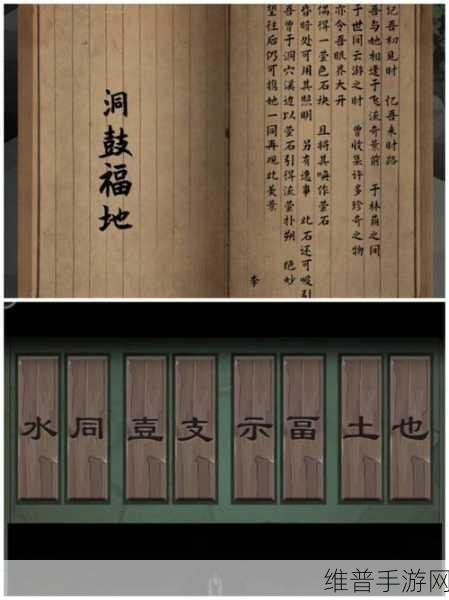 记吾初见时 记吾来时路
吾与她相逢于飞流奇景前 于林荫之间
于世间云游之时 曾收集许多珍奇之物
亦令吾眼界大开
偶得一莹色石块 且将其唤作萤石
昏暗处可用其照明 另有逸事 此石还可吸引
吾曾于洞穴溪边以萤石引得流萤扑朔 绝妙
望往后仍可携她一同再观此美景
李
洞鼓福地
水 同 壴 支 示 畐 土 也
维普手游网